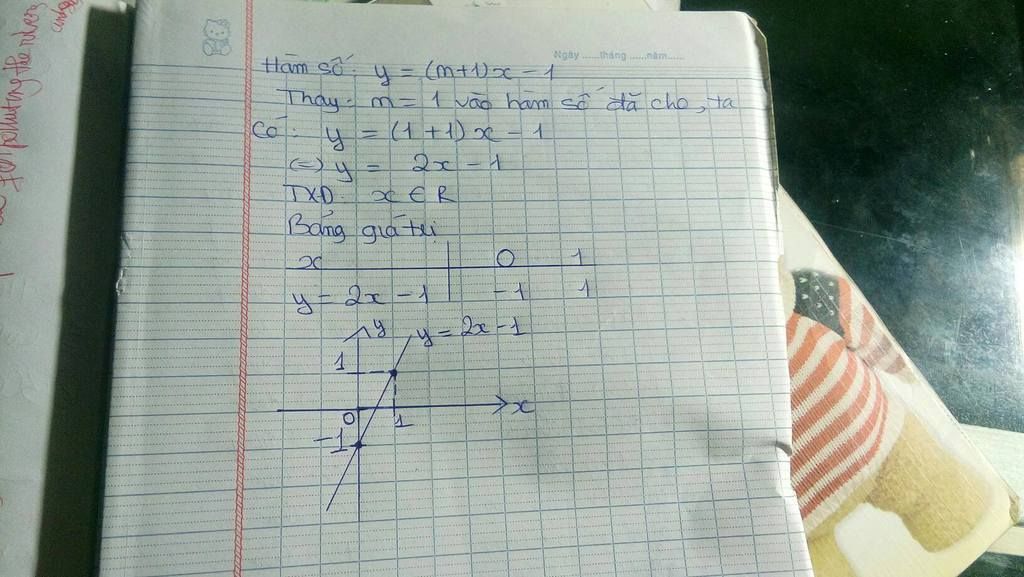 Ngày ......tháng ......năm......
Hàm số: y = (m+1)x - 1
Thay m = 1 vào hàm số đã cho, ta
có: y = (1+1)x - 1
(=) y = 2x - 1
TXĐ: x ∈ R
Bảng giá trị
x 0 1
y = 2x - 1 -1 1
y y = 2x - 1
1
0 1 x
-1
for polluting the river